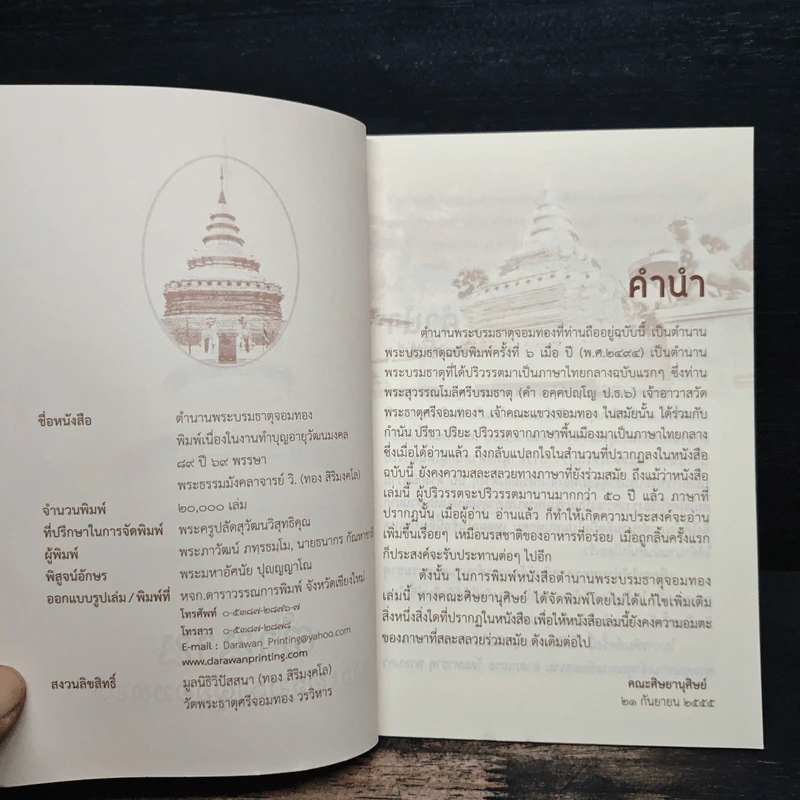 ชื่อหนังสือ ตำนานพระบรมธาตุจอมทอง
พิมพ์เนื่องในงานทำบุญอายุวัฒนมงคล
๘๙ ปี ๖๙ พรรษา
พระธรรมมังคลาจารย์ วิ. (ทอง สิริมงฺคโล)
จำนวนพิมพ์ ๒๐,๐๐๐ เล่ม
ที่ปรึกษาในการจัดพิมพ์ พระครูปลัดสุวัฒนวิสุทธิคุณ
ผู้พิมพ์ พระภาวัฒน์ ภทฺรธมฺโม, นายธนากร
พิสูจน์อักษร พระมหาอัศนัย ปุญฺญาโณ
ออกแบบรูปเล่ม / พิมพ์ที่ หจก.ดาราวรรณการพิมพ์ จังหวัดเชียงใหม่
โทรศัพท์ ๐-๕๓๘๗-๒๘๗๖-๗
โทรสาร ๐-๕๓๘๗-๒๘๗๘
E-mail : Darawan_Printing@yahoo.com
www.darawanprinting.com
สงวนลิขสิทธิ์ มูลนิธิวิปัสสนา (ทอง สิริมงฺคโล)
วัดพระธาตุศรีจอมทอง วรวิหาร
คำนำ
ตำนานพระบรมธาตุจอมทองที่ท่านถืออยู่ฉบับนี้ เป็นตำนาน
พระบรมธาตุฉบับพิมพ์ครั้งที่ ๖ เมื่อ ปี (พ.ศ.๒๔๙๔) เป็นตำนาน
พระบรมธาตุที่ได้ปริวรรตมาเป็นภาษาไทยกลางฉบับแรกๆ ซึ่งท่าน
พระสุวรรณโมลีศรีบรมธาตุ (คำ อคฺคปญฺโญ ป.ธ.๖) เจ้าอาวาสวัด
พระธาตุศรีจอมทองฯ เจ้าคณะแขวงจอมทอง ในสมัยนั้น ได้ร่วมกับ
กำนัน ปรีชา ปริยะ ปริวรรตจากภาษาพื้นเมืองมาเป็นภาษาไทยกลาง
ซึ่งเมื่อได้อ่านแล้ว ถึงกลับแปลกใจในสำนวนที่ปรากฏลงในหนังสือ
ฉบับนี้ ยังคงความสละสลวยทางภาษาที่ยังร่วมสมัย ถึงแม้ว่าหนังสือ
เล่มนี้ ผู้ปริวรรตจะปริวรรตมานานมากกว่า ๕๐ ปี แล้ว ภาษาที่
ปรากฏนั้น เมื่อผู้อ่าน อ่านแล้ว ก็ทำให้เกิดความประสงค์จะอ่าน
เพิ่มขึ้นเรื่อยๆ เหมือนรสชาติของอาหารที่อร่อย เมื่อถูกลิ้นครั้งแรก
ก็ประสงค์จะรับประทานต่อๆ ไปอีก
ดังนั้น ในการพิมพ์หนังสือตำนานพระบรมธาตุจอมทอง
เล่มนี้ ทางคณะศิษยานุศิษย์ ได้จัดพิมพ์โดยไม่ได้แก้ไขเพิ่มเติม
สิ่งหนึ่งสิ่งใดที่ปรากฏในหนังสือ เพื่อให้หนังสือเล่มนี้ยังคงความอมตะ
ของภาษาที่สละสลวยร่วมสมัย ดังเดิมต่อไป
คณะศิษยานุศิษย์
๒๑ กันยายน ๒๕๕๕